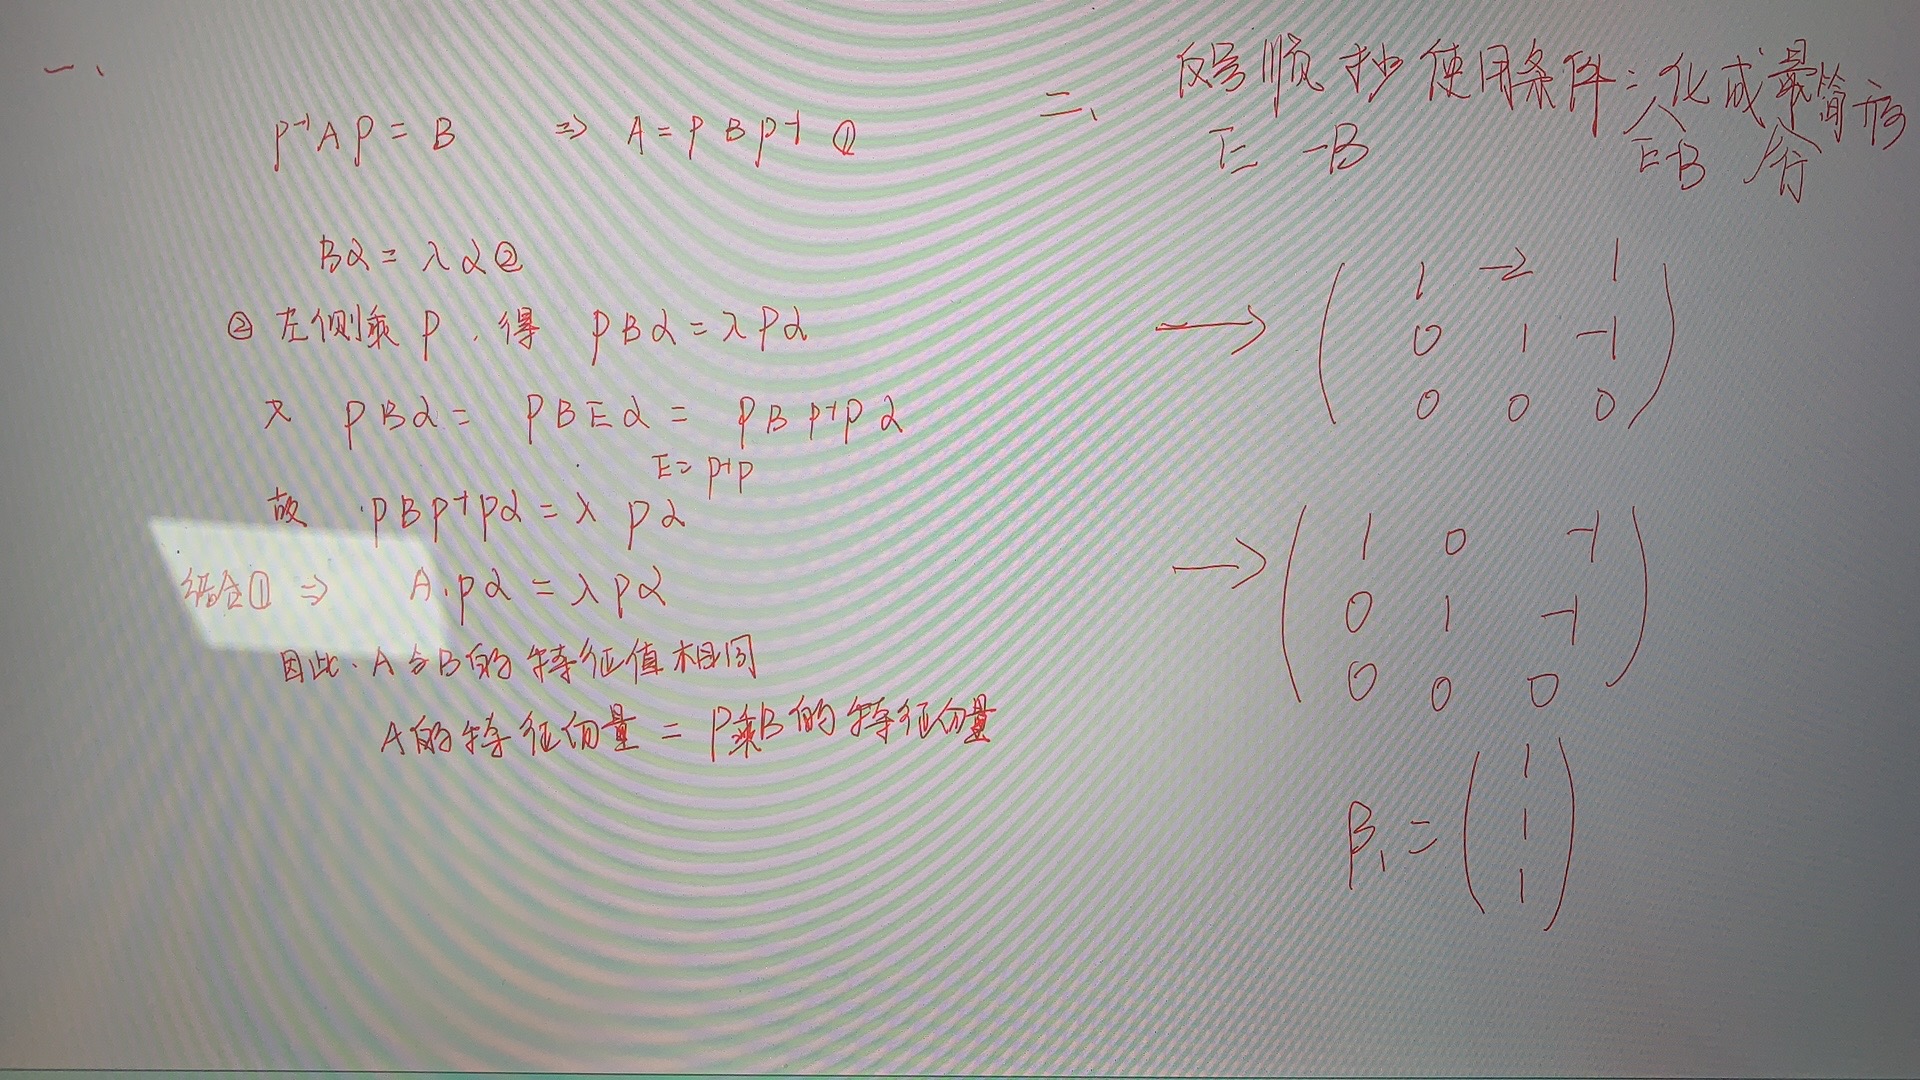 一、
P⁻¹AP = B ⇒ A = PBP⁻¹ ①
Bα = λα②
② 左侧乘 P，得 PBα = λPα
又 PBα = PBEα = PBP⁻¹Pα
E = P⁻¹P
故 PBP⁻¹Pα = λPα
结合① ⇒ A·Pα = λPα
因此·A与B的特征值相同
A的特征向量 = P乘B的特征向量
二、反号顺抄使用条件：化成最简形
E -B E-B 行
→ ( 1 -2 1
0 1 -1
0 0 0 )
→ ( 1 0 -1
0 1 -1
0 0 0 )
β₁ = ( 1
1
1 )